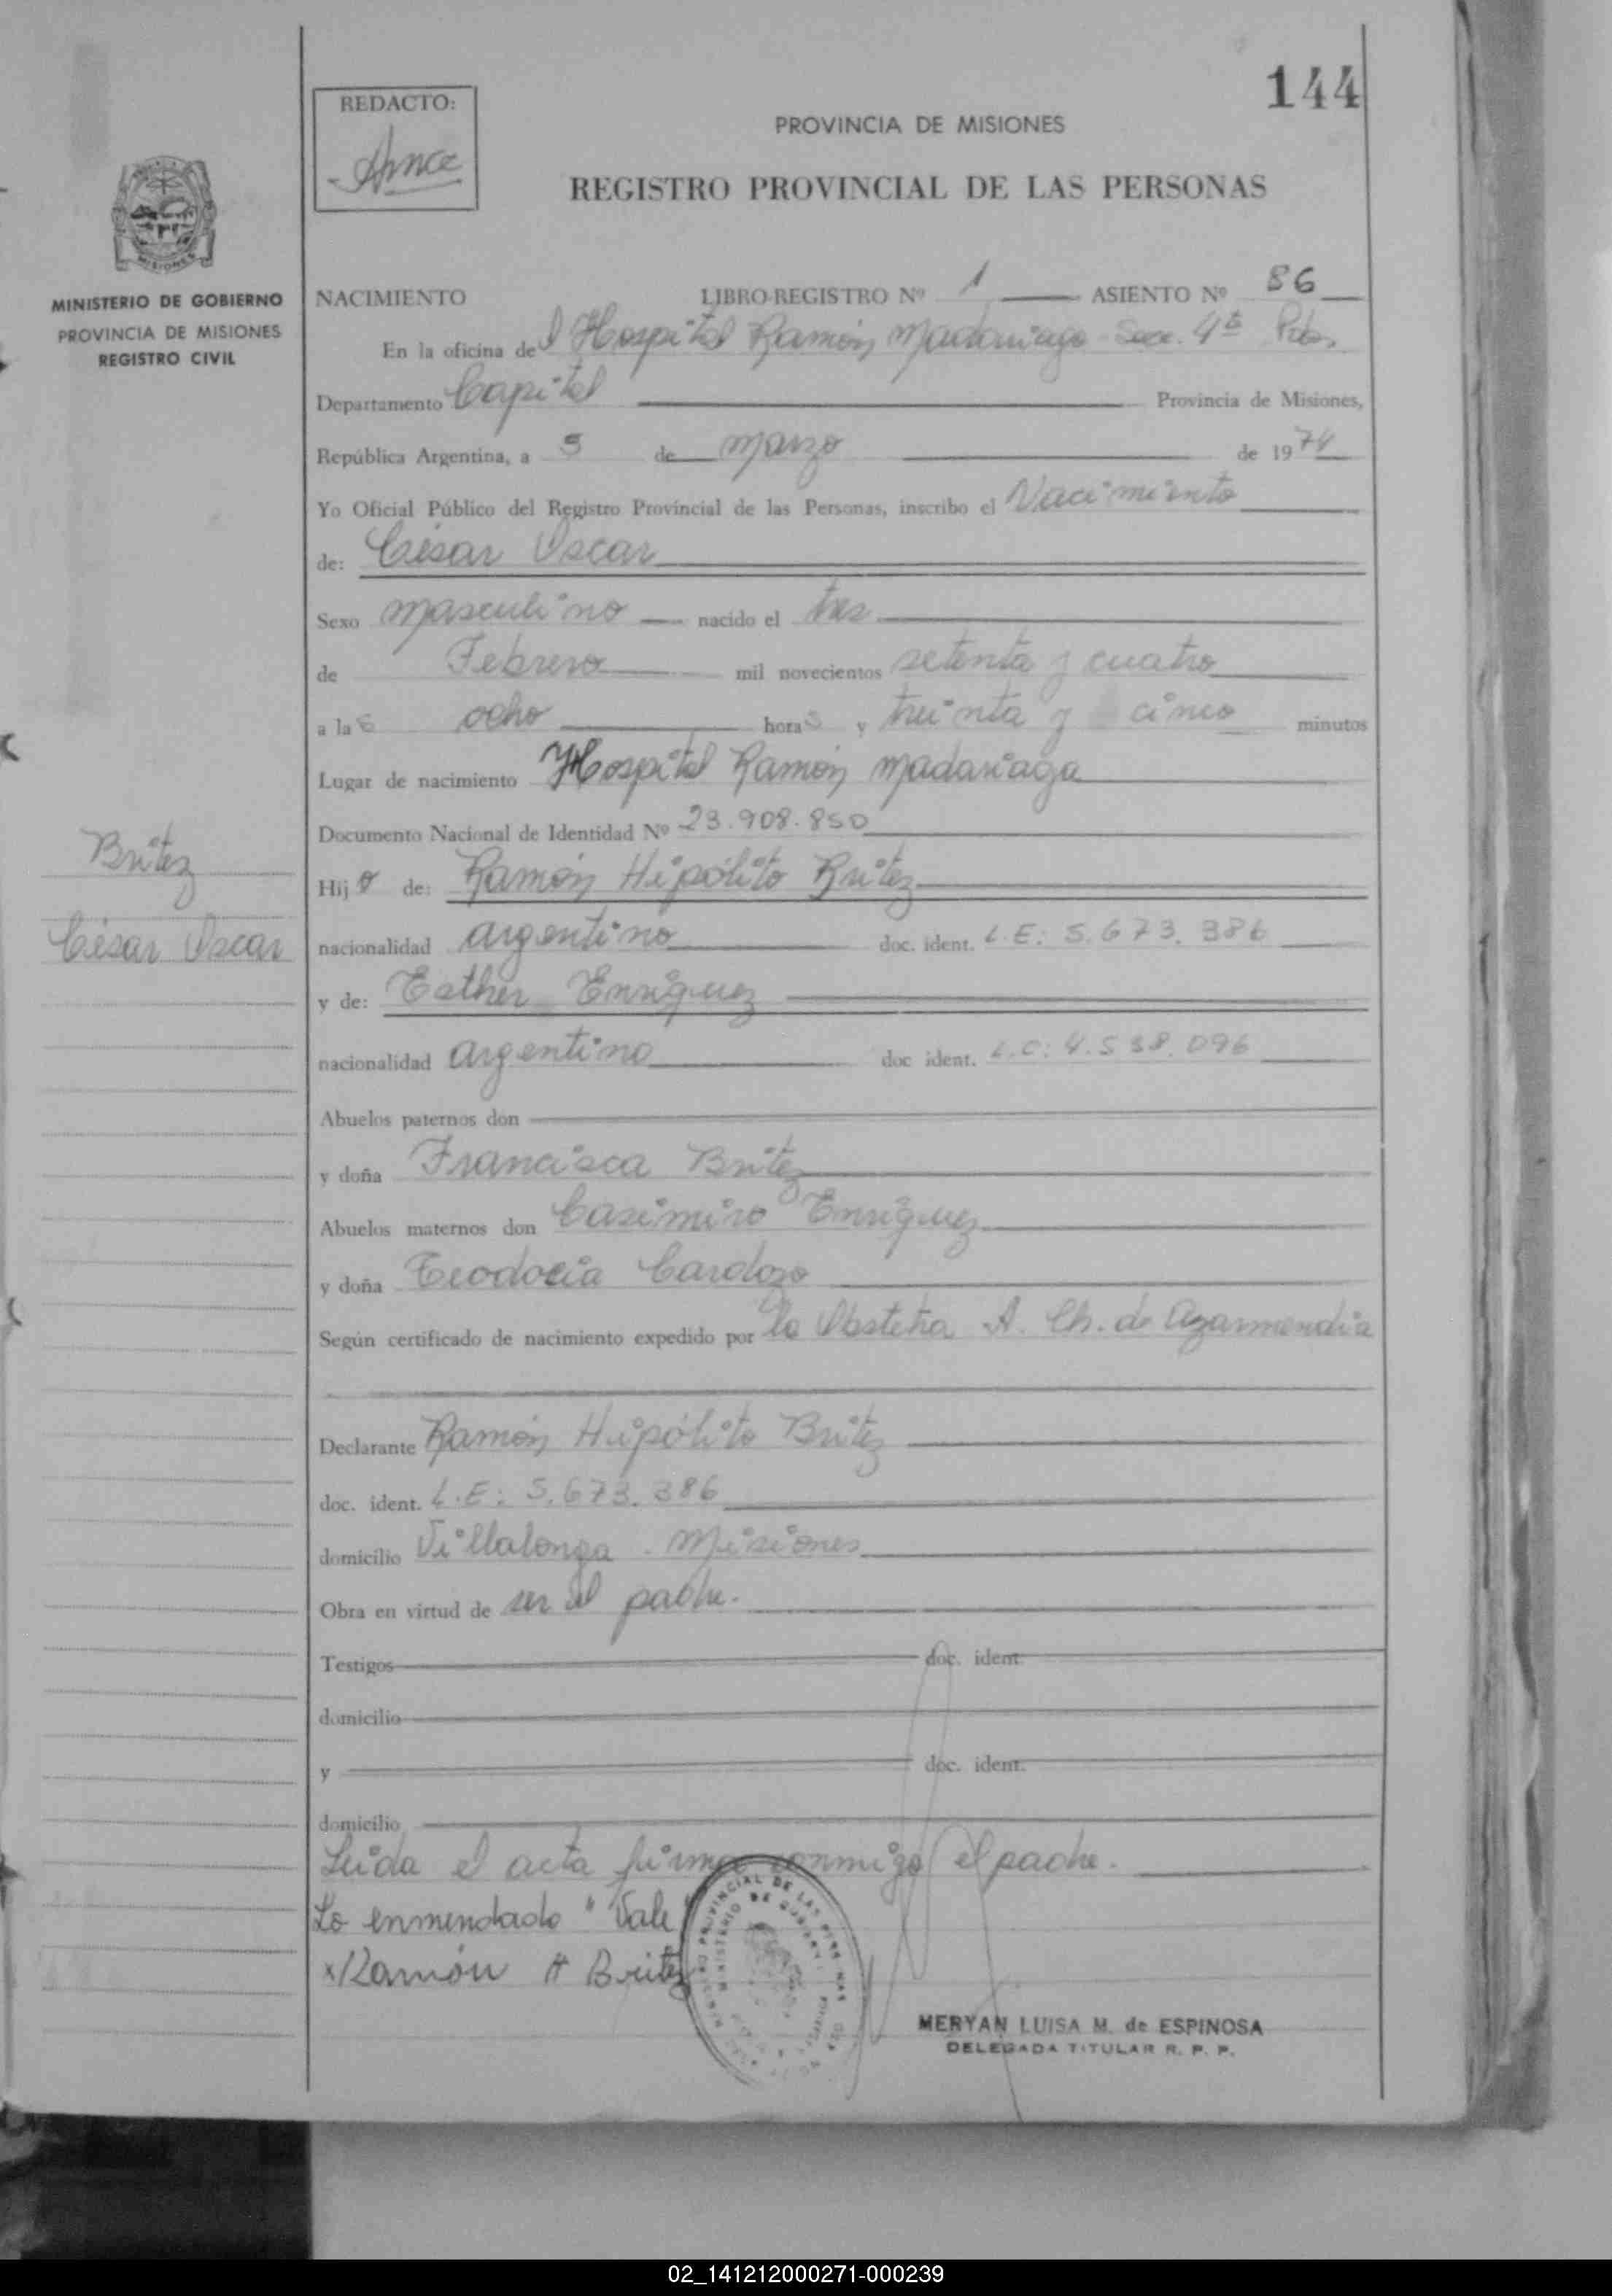 144
REDACTO:
PROVINCIA DE MISIONES
REGISTRO PROVINCIAL DE LAS PERSONAS
MISIONES
MINISTERIO DE GOBIERNO
PROVINCIA DE MISIONES
REGISTRO CIVIL
NACIMIENTO LIBRO-REGISTRO Nº 1 ASIENTO Nº 86
En la oficina del Hospital Ramón Madariaga Secc. 4ta Pdas.
Departamento Capital Provincia de Misiones,
República Argentina, a 5 de marzo de 1974
Yo Oficial Público del Registro Provincial de las Personas, inscribo el Nacimiento
de: César Oscar
Sexo masculino nacido el tres
de Febrero mil novecientos setenta y cuatro
a las ocho horas y treinta y cinco minutos
Lugar de nacimiento Hospital Ramón Madariaga
Documento Nacional de Identidad Nº 23.908.850
Britez
César Oscar
Hijo de: Ramón Hipólito Britez
nacionalidad argentino doc. ident. L.E: 5.673.386
y de: Esther Enriquez
nacionalidad argentino doc ident. L.C: 4.538.096
Abuelos paternos don
y doña Francisca Britez
Abuelos maternos don Casimiro Enriquez
y doña Teodocia Cardozo
Según certificado de nacimiento expedido por la Obstetra A. Ch. de Azarmendia
Declarante Ramón Hipólito Britez
doc. ident. L.E: 5.673.386
domicilio Villalonga - Misiones
Obra en virtud de ser el padre.
Testigos doc. ident.
domicilio
y doc. ident.
domicilio
Leida el acta firma conmigo el padre.
Lo enmendado "Vale"
x Ramón H Britez
MERYAN LUISA M. de ESPINOSA
DELEGADA TITULAR R. P. P.
02_141212000271-000239